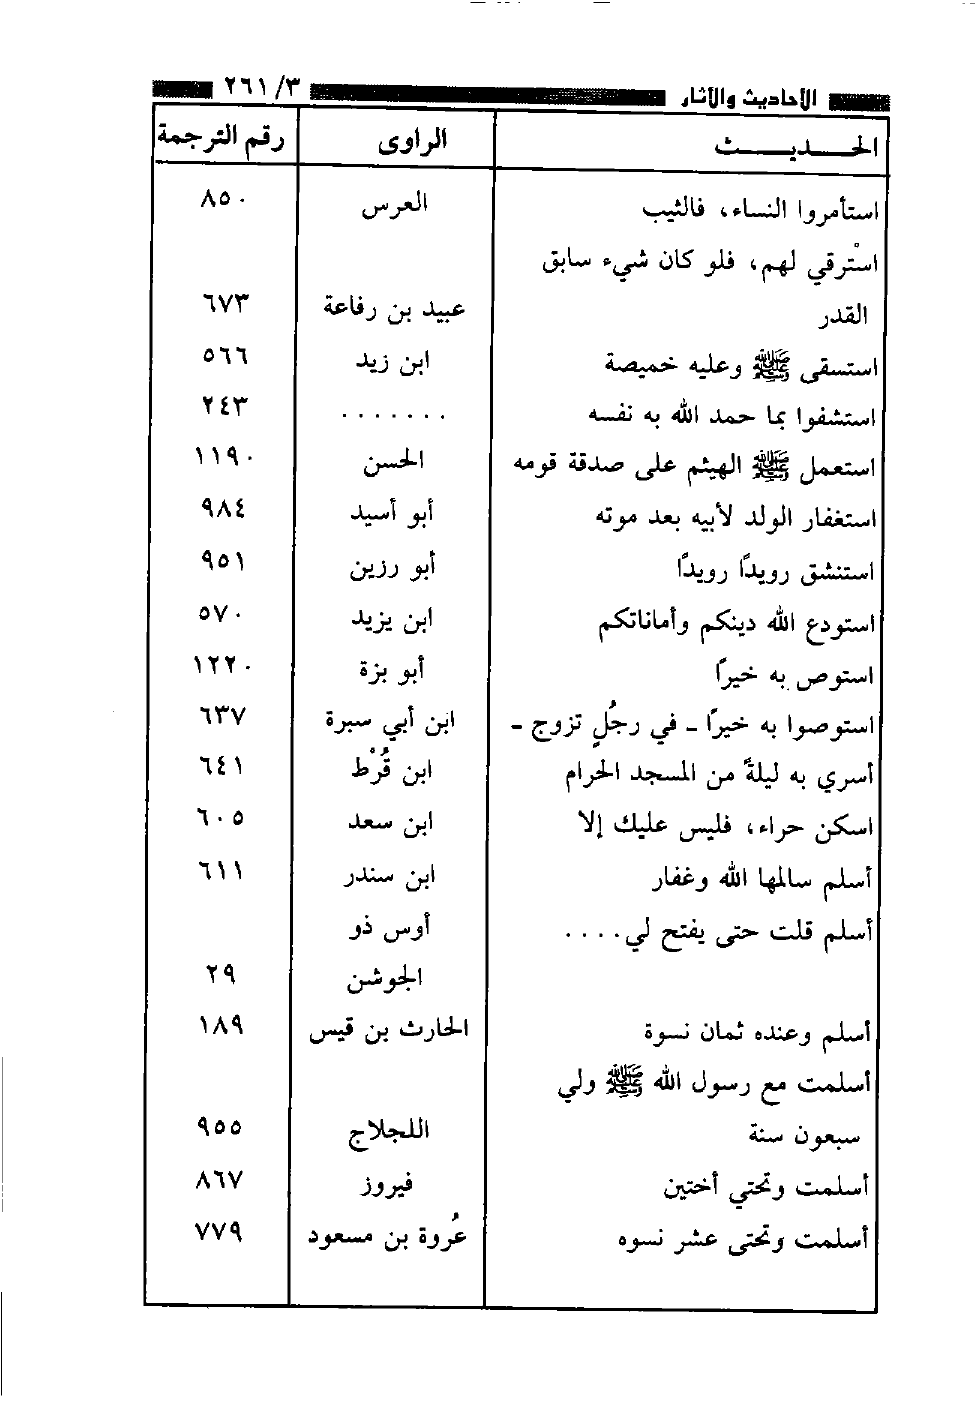 الأحاديث والآثار ٢٦١/٣
الحـــديـــــث الراوى رقم الترجمة
استأمروا النساء، فالثيب العرس ٨٥٠
اسْترقي لهم، فلو كان شيء سابق
القدر عبيد بن رفاعة ٦٧٣
استسقى ﷺ وعليه خميصة ابن زيد ٥٦٦
استشفوا بما حمد الله به نفسه ....... ٢٤٣
استعمل ﷺ الهيثم على صدقة قومه الحسن ١١٩٠
استغفار الولد لأبيه بعد موته أبو أسيد ٩٨٤
استنشق رويدًا رويدًا أبو رزين ٩٥١
استودع الله دينكم وأماناتكم ابن يزيد ٥٧٠
استوص به خيرًا أبو بزة ١٢٢٠
استوصوا به خيرًا ـ في رجُلٍ تزوج ـ ابن أبي سبرة ٦٣٧
أسري به ليلةً من المسجد الحرام ابن قُرْط ٦٤١
اسكن حراء، فليس عليك إلا ابن سعد ٦٠٥
أسلم سالمها الله وغفار ابن سندر ٦١١
أسلم قلت حتى يفتح لي.... أوس ذو
الجوشن ٢٩
أسلم وعنده ثمان نسوة الحارث بن قيس ١٨٩
أسلمت مع رسول الله ﷺ ولي
سبعون سنة اللجلاج ٩٥٥
أسلمت وتحتي أختين فيروز ٨٦٧
أسلمت وتحتى عشر نسوه عُروة بن مسعود ٧٧٩